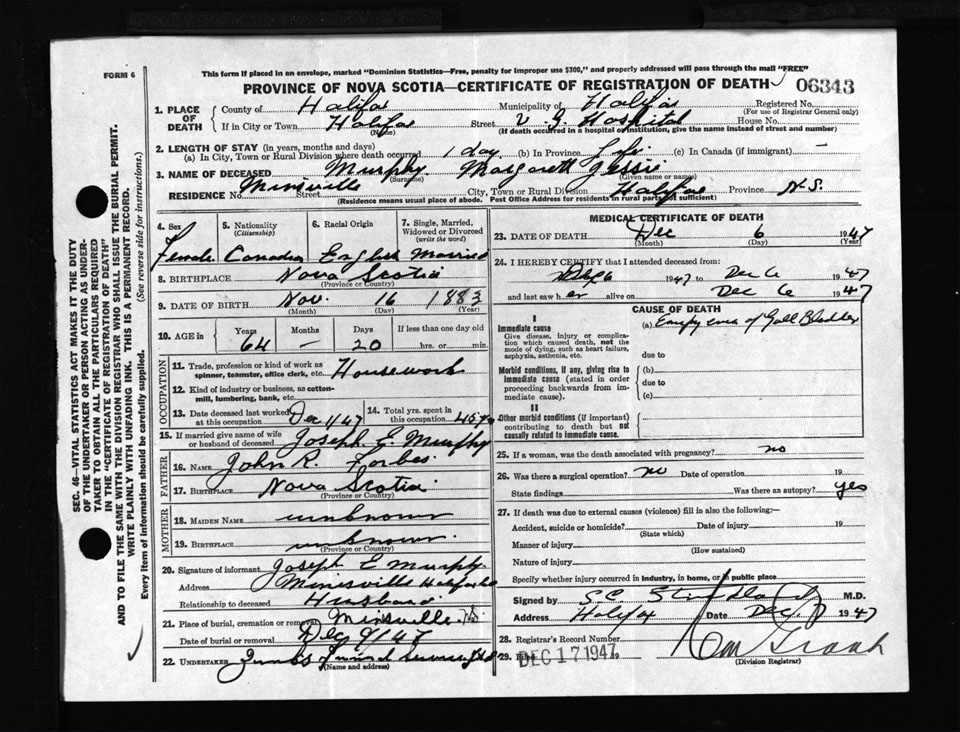 FORM 6
This form if placed in an envelope, marked "Dominion Statistics—Free, penalty for improper use $300," and properly addressed will pass through the mail "FREE"
PROVINCE OF NOVA SCOTIA—CERTIFICATE OF REGISTRATION OF DEATH 06343
1. PLACE OF DEATH County of Halifax Municipality of Halifax Registered No.
(For use of Registrar General only)
If in City or Town Halifax Street V. G. Hospital House No.
(Name) (If death occurred in a hospital or institution, give the name instead of street and number)
2. LENGTH OF STAY (in years, months and days)
(a) In City, Town or Rural Division where death occurred 1 day (b) In Province Life (c) In Canada (if immigrant) —
3. NAME OF DECEASED Murphy Margarett Jessie
(Surname) (Given name or names)
RESIDENCE No. Street City, Town or Rural Division Halifax Province N.S.
(Residence means usual place of abode. Post Office Address for residents in rural parts not sufficient)
4. Sex 5. Nationality (Citizenship) 6. Racial Origin 7. Single, Married, Widowed or Divorced (write the word)
Female Canadian English Married
8. BIRTHPLACE Nova Scotia
(Province or Country)
9. DATE OF BIRTH Nov. 16 1883
(Month) (Day) (Year)
10. AGE in Years Months Days If less than one day old
64 — 20 hrs. or min.
OCCUPATION
11. Trade, profession or kind of work as spinner, teamster, office clerk, etc. Housework
12. Kind of industry or business, as cotton-mill, lumbering, bank, etc.
13. Date deceased last worked at this occupation Dec 1/47 14. Total yrs. spent in this occupation 45 yrs
15. If married give name of wife or husband of deceased Joseph E Murphy
FATHER
16. NAME John R. Forbes
17. BIRTHPLACE Nova Scotia
(Province or Country)
MOTHER
18. MAIDEN NAME unknown
19. BIRTHPLACE unknown
(Province or Country)
20. Signature of informant Joseph E Murphy
Address
Relationship to deceased Husband
21. Place of burial, cremation or removal
Date of burial or removal Dec 9/47
22. UNDERTAKER Funeral Service
(Name and address)
MEDICAL CERTIFICATE OF DEATH
23. DATE OF DEATH Dec 6 1947
(Month) (Day) (Year)
24. I HEREBY CERTIFY that I attended deceased from:
Dec 6 1947 to Dec 6 1947
and last saw her alive on Dec 6 1947
CAUSE OF DEATH
I
Immediate cause (a) Empyema of Gall Bladder
Give disease, injury or complication which caused death, not the mode of dying, such as heart failure, asphyxia, asthenia, etc.
due to
Morbid conditions, if any, giving rise to immediate cause (stated in order proceeding backwards from immediate cause)
(b)
due to
(c)
II
Other morbid conditions (if important) contributing to death but not causally related to immediate cause.
25. If a woman, was the death associated with pregnancy? no
26. Was there a surgical operation? no Date of operation 19
State findings Was there an autopsy? yes
27. If death was due to external causes (violence) fill in also the following:—
Accident, suicide or homicide? Date of injury 19
(State which)
Manner of injury
(How sustained)
Nature of injury
Specify whether injury occurred in industry, in home, or in public place
Signed by S.C. M.D.
Address Halifax Date Dec. 1947
28. Registrar's Record Number
29. DEC 17 1947 19
(Division Registrar)
SEC. 46—VITAL STATISTICS ACT MAKES IT THE DUTY
OF THE UNDERTAKER OR PERSON ACTING AS UNDER-
TAKER TO OBTAIN ALL THE PARTICULARS REQUIRED
IN THE "CERTIFICATE OF REGISTRATION OF DEATH"
AND TO FILE THE SAME WITH THE DIVISION REGISTRAR WHO SHALL ISSUE THE BURIAL PERMIT.
WRITE PLAINLY WITH UNFADING INK. THIS IS A PERMANENT RECORD.
Every item of information should be carefully supplied. (See reverse side for instructions.)